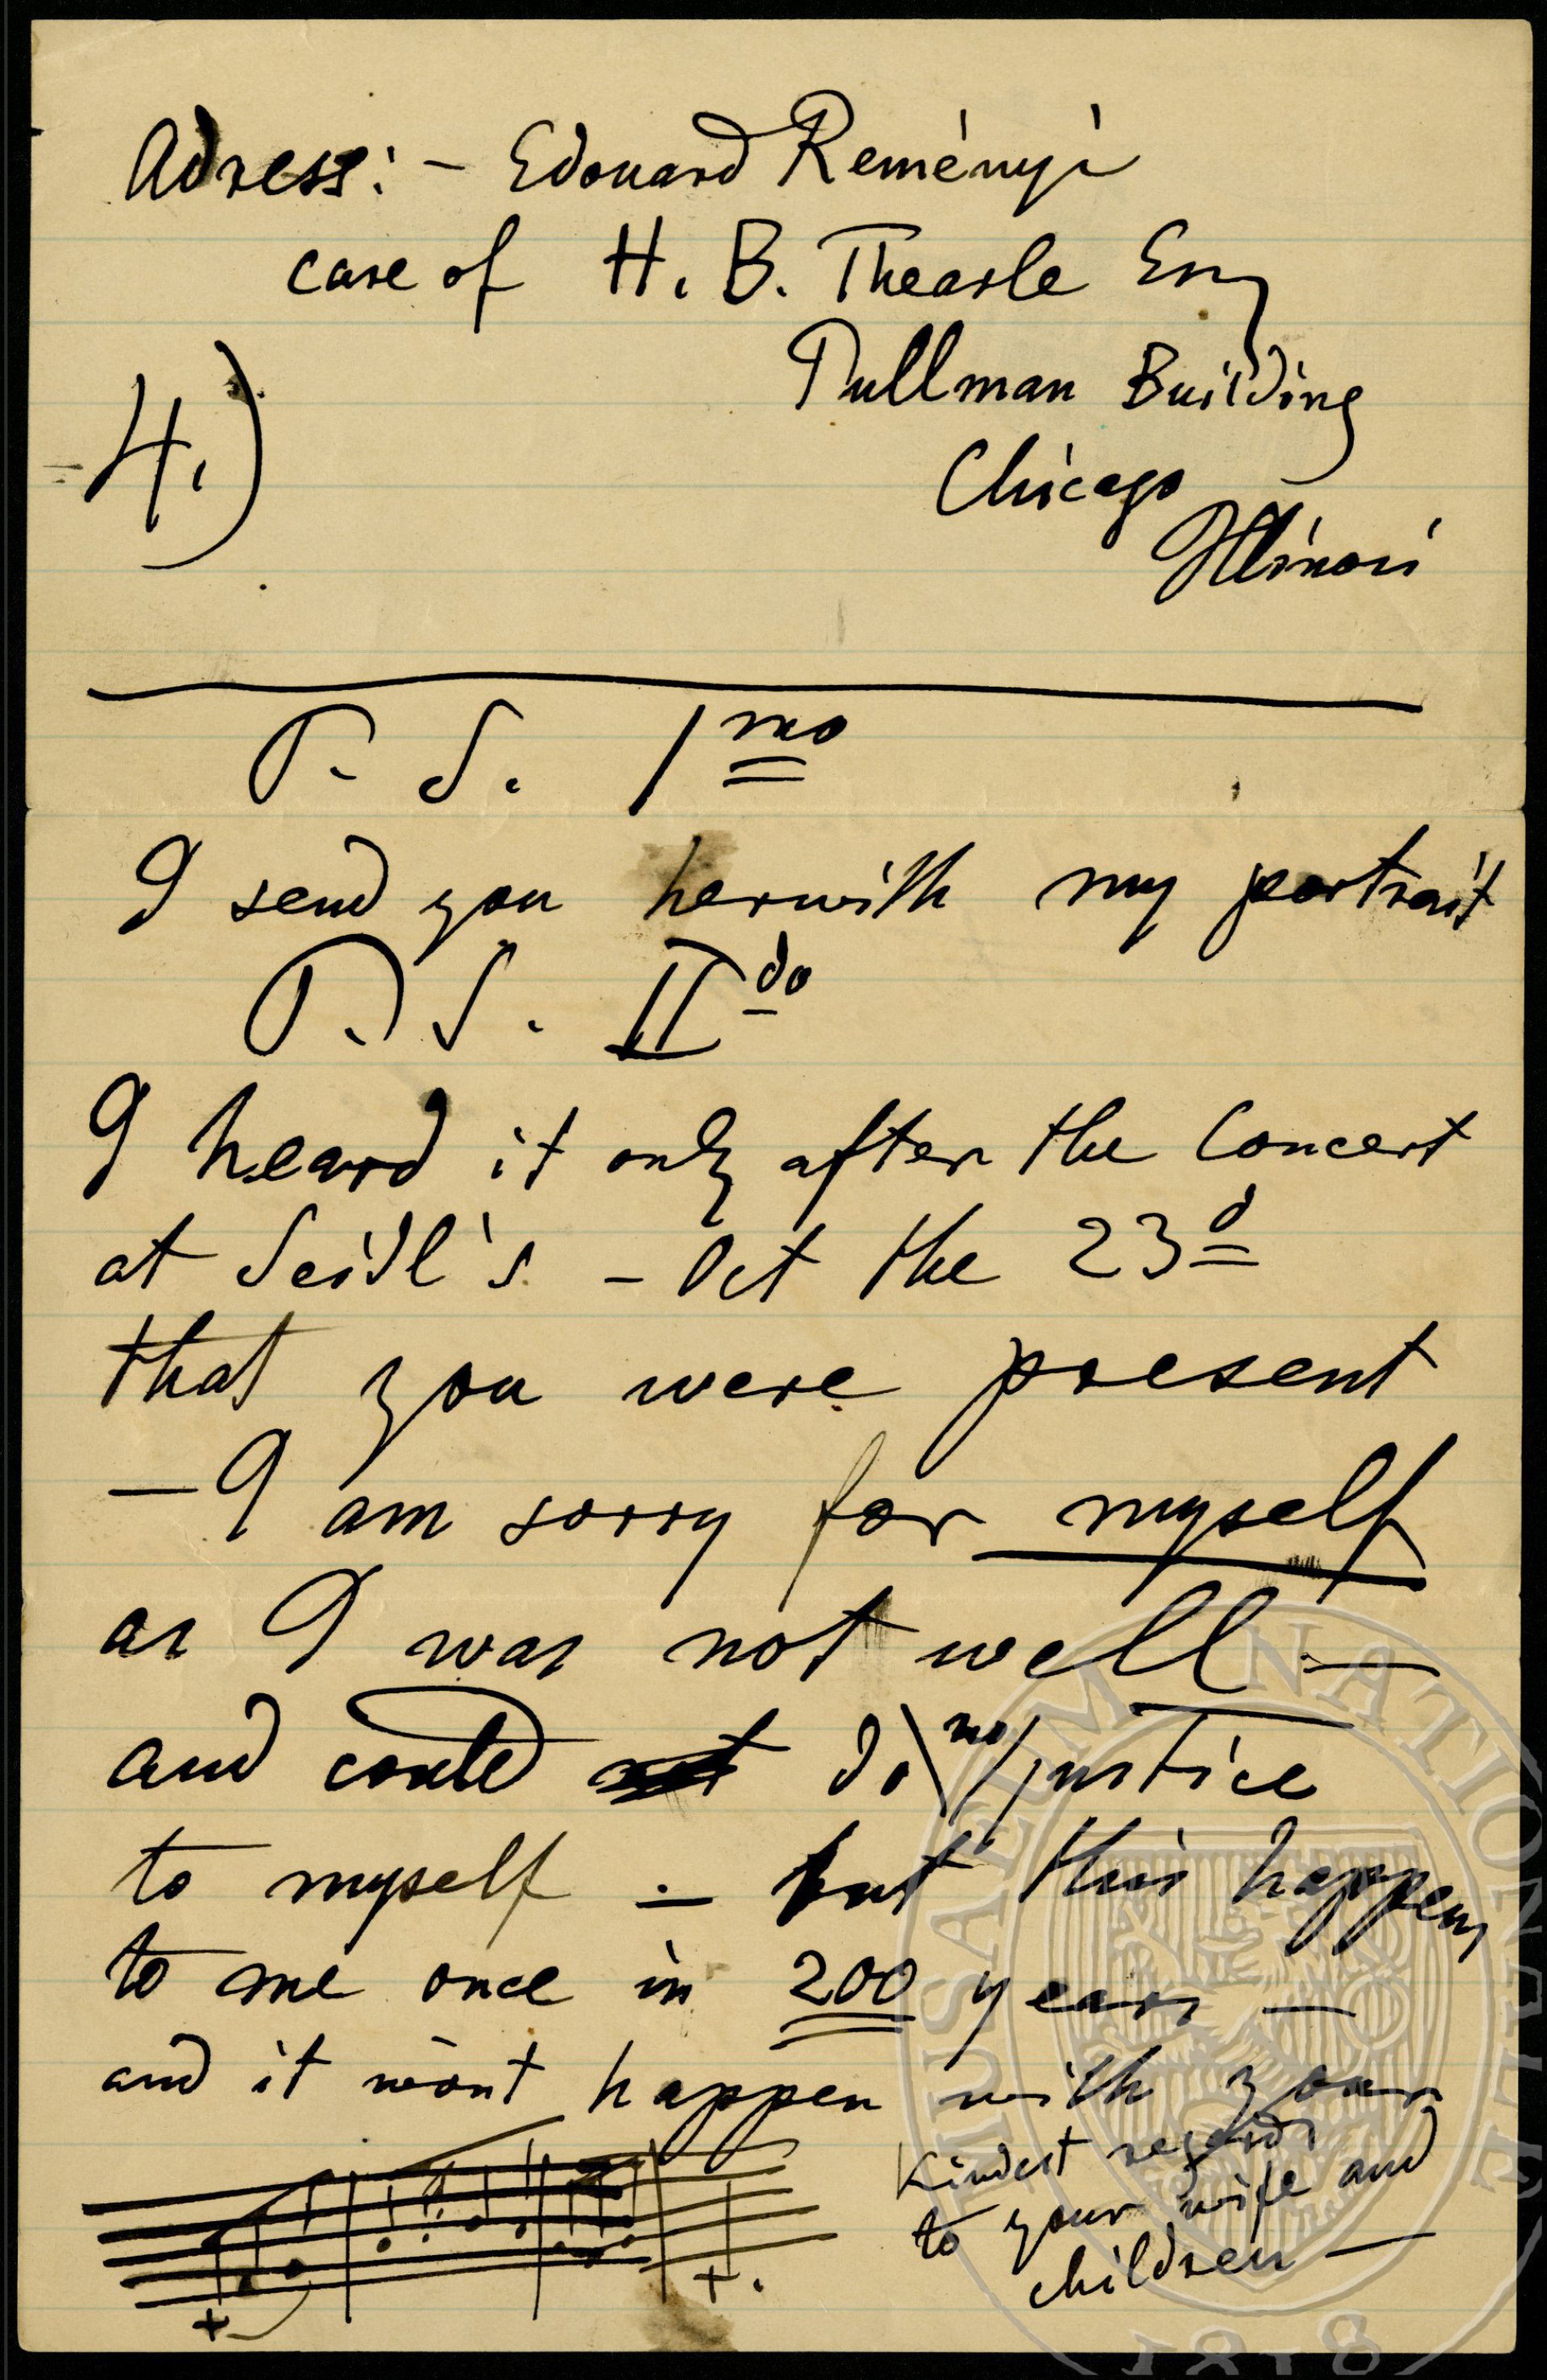 Adress: - Edouard Reményi
care of H. B. Thearle Esq
Pullman Building
Chicago
Illinois
4.)
P. S. 1mo
I send you herwith my portrait
P. S. IIdo
I heard it only after the Concert
at Seidl's - Oct the 23d
that you were present
- I am sorry for myself
as I was not well -
and could not do no justice
to myself - but this happens
to me once in 200 years -
and it wont happen with your
Kindest regards
to your wife and
children -
MUSAEUM NATIONALE
1818